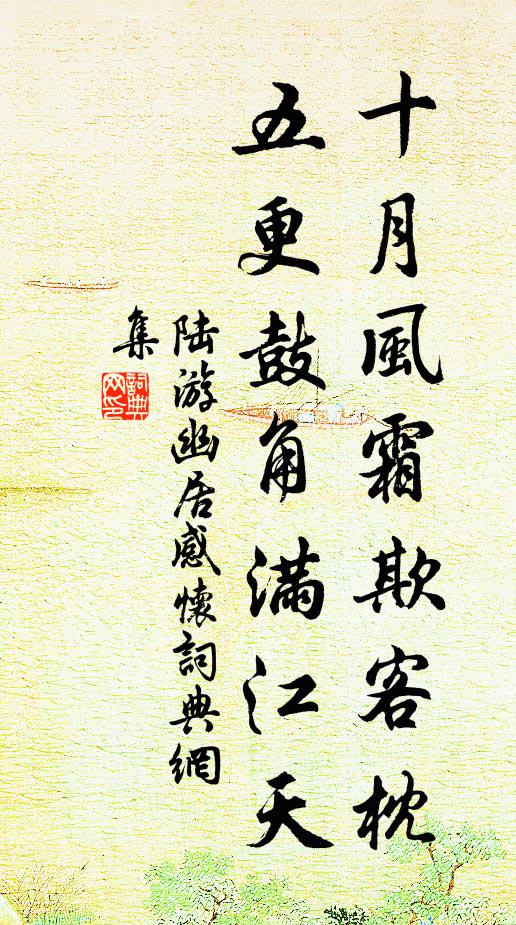 十月風霜欺客枕
五更鼓角滿江天
陆游幽居感懷詞典網
集
詞典網印